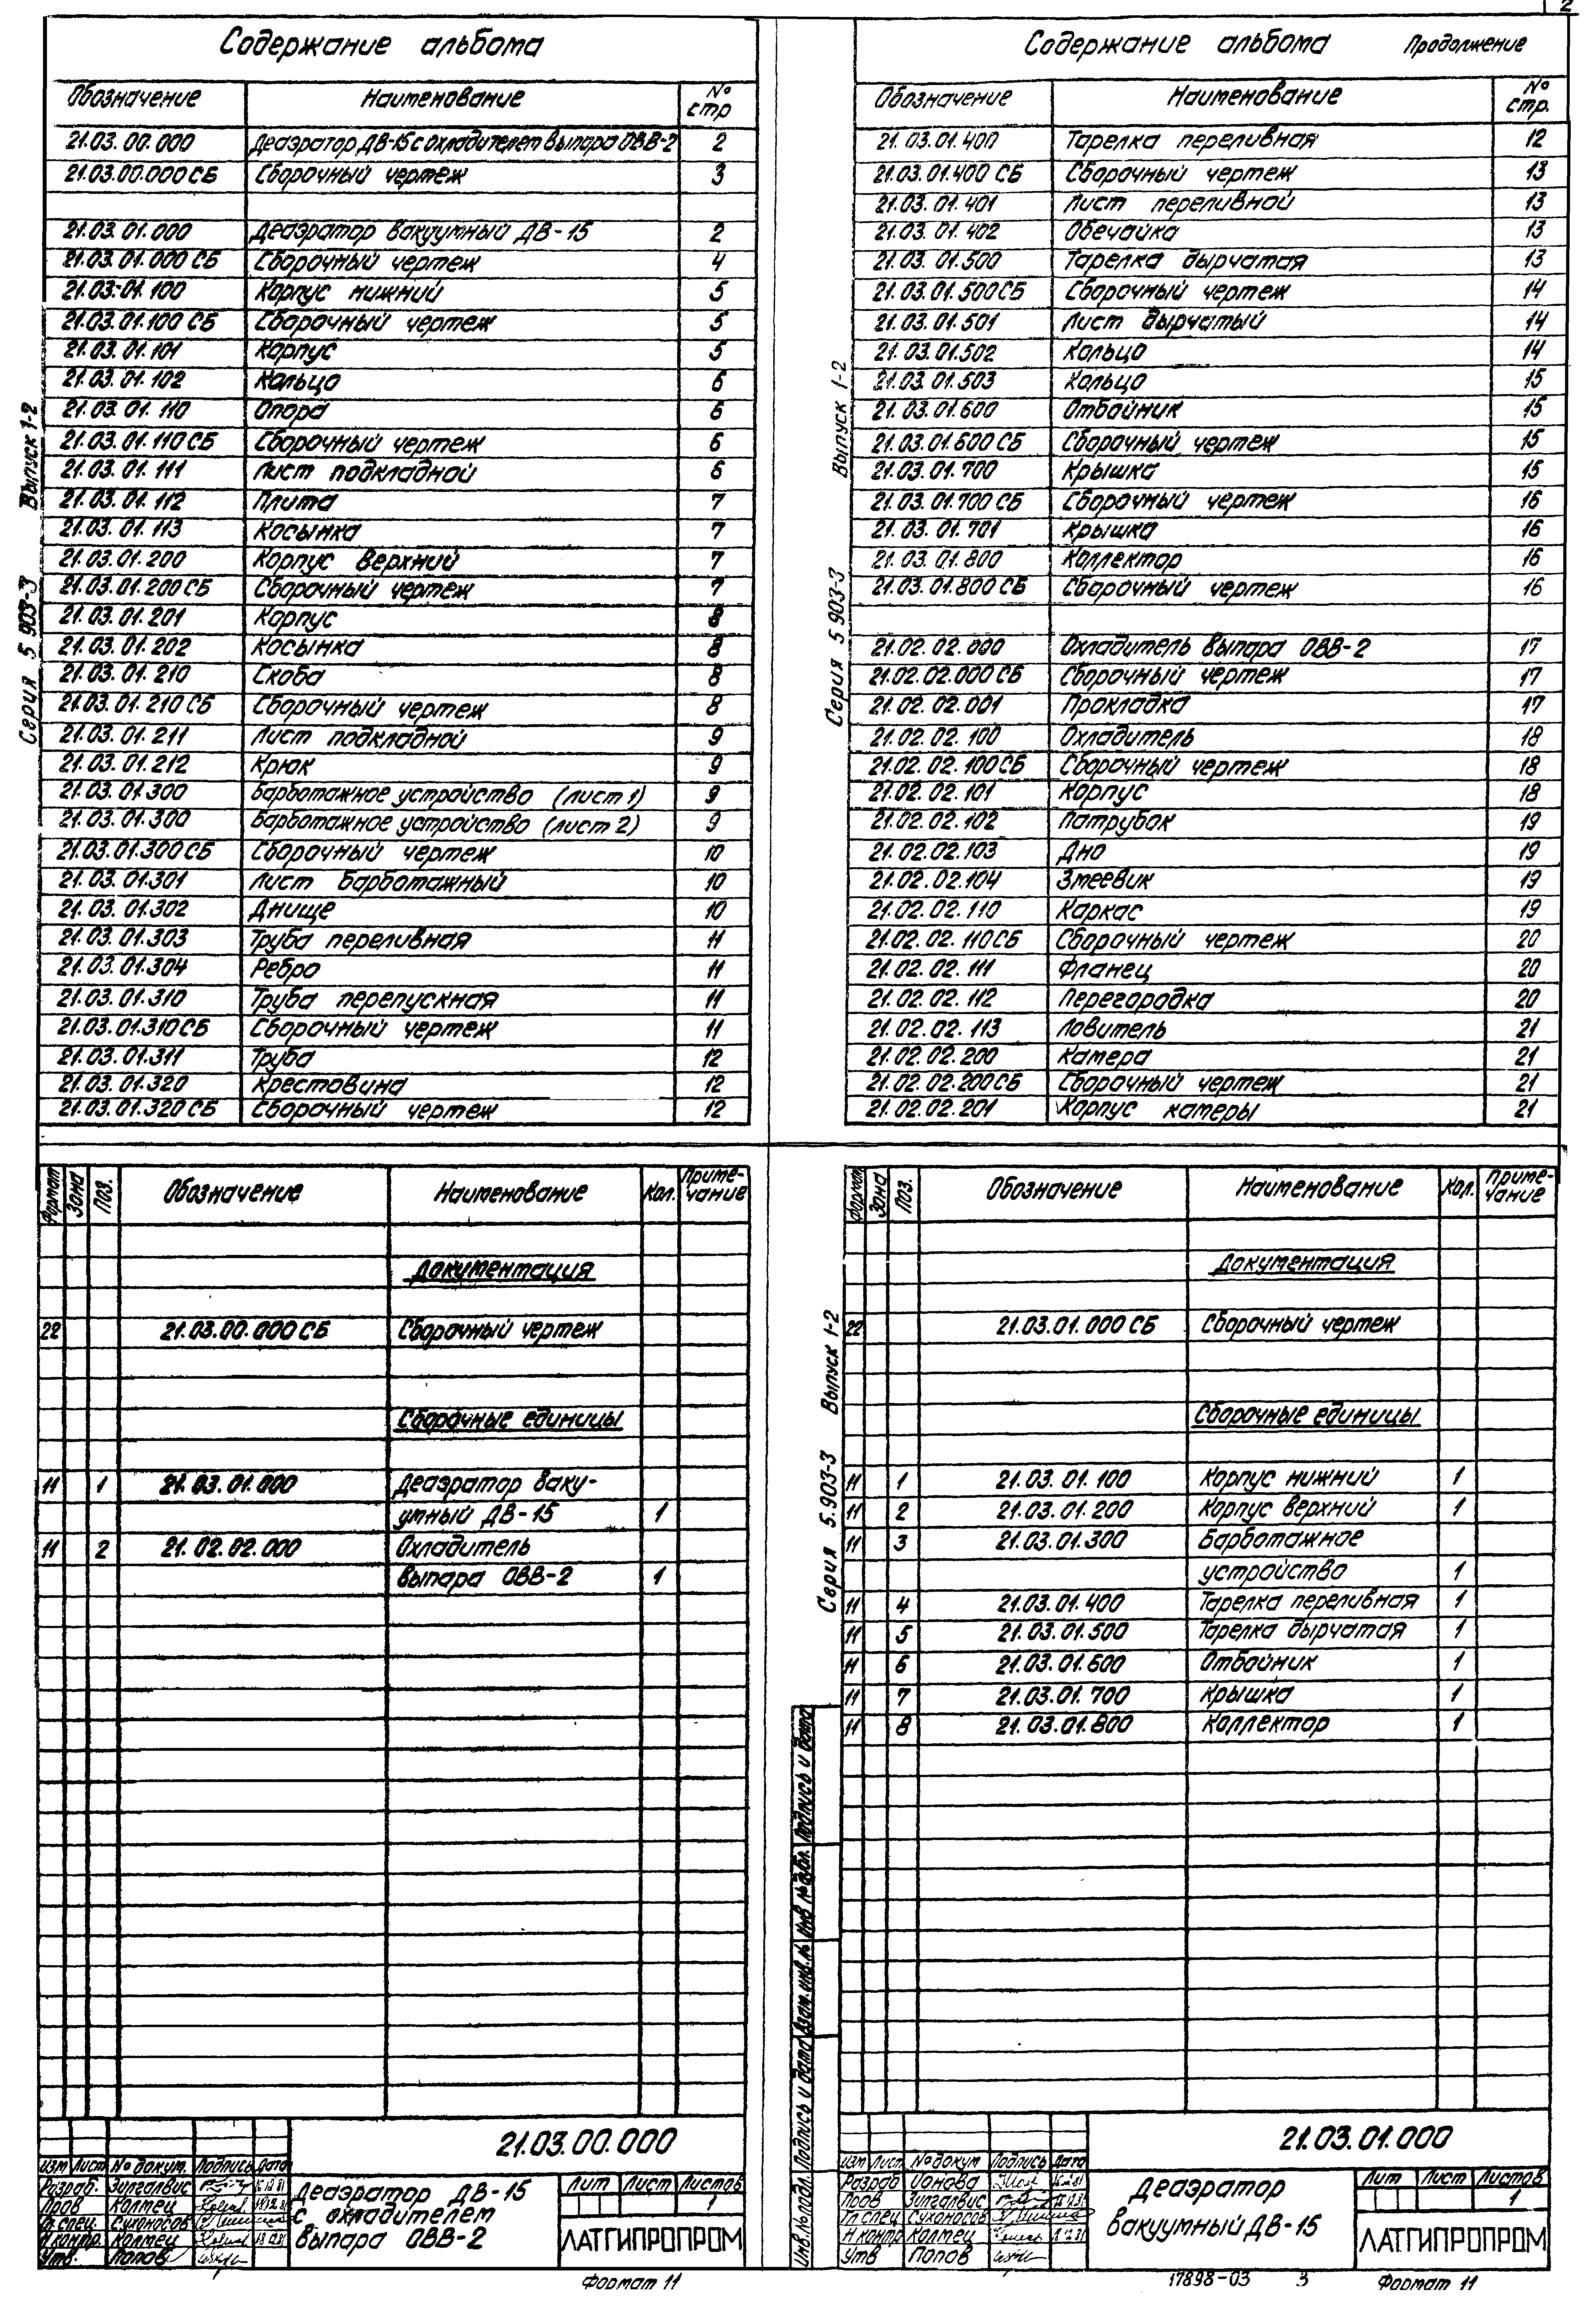 2
Содержание альбома
Обозначение Наименование № стр
21.03.00.000 Деаэратор ДВ-15 с охладителем выпара ОВВ-2 2
21.03.00.000 СБ Сборочный чертеж 3
21.03.01.000 Деаэратор вакуумный ДВ-15 2
21.03.01.000 СБ Сборочный чертеж 4
21.03.01.100 Корпус нижний 5
21.03.01.100 СБ Сборочный чертеж 5
21.03.01.101 Корпус 5
21.03.01.102 Кольцо 6
21.03.01.110 Опора 6
21.03.01.110 СБ Сборочный чертеж 6
21.03.01.111 Лист подкладной 6
21.03.01.112 Плита 7
21.03.01.113 Косынка 7
21.03.01.200 Корпус верхний 7
21.03.01.200 СБ Сборочный чертеж 7
21.03.01.201 Корпус 8
21.03.01.202 Косынка 8
21.03.01.210 Скоба 8
21.03.01.210 СБ Сборочный чертеж 8
21.03.01.211 Лист подкладной 9
21.03.01.212 Крюк 9
21.03.01.300 Барботажное устройство (лист 1) 9
21.03.01.300 Барботажное устройство (лист 2) 9
21.03.01.300 СБ Сборочный чертеж 10
21.03.01.301 Лист барботажный 10
21.03.01.302 Днище 10
21.03.01.303 Труба переливная 11
21.03.01.304 Ребро 11
21.03.01.310 Труба перепускная 11
21.03.01.310 СБ Сборочный чертеж 11
21.03.01.311 Труба 12
21.03.01.320 Крестовина 12
21.03.01.320 СБ Сборочный чертеж 12
Серия 5 903-3 Выпуск 1-2
Содержание альбома Продолжение
Обозначение Наименование № стр.
21.03.01.400 Тарелка переливная 12
21.03.01.400 СБ Сборочный чертеж 13
21.03.01.401 Лист переливной 13
21.03.01.402 Обечайка 13
21.03.01.500 Тарелка дырчатая 13
21.03.01.500 СБ Сборочный чертеж 14
21.03.01.501 Лист дырчатый 14
21.03.01.502 Кольцо 14
21.03.01.503 Кольцо 15
21.03.01.600 Отбойник 15
21.03.01.600 СБ Сборочный чертеж 15
21.03.01.700 Крышка 15
21.03.01.700 СБ Сборочный чертеж 16
21.03.01.701 Крышка 16
21.03.01.800 Коллектор 16
21.03.01.800 СБ Сборочный чертеж 16
21.02.02.000 Охладитель выпара ОВВ-2 17
21.02.02.000 СБ Сборочный чертеж 17
21.02.02.001 Прокладка 17
21.02.02.100 Охладитель 18
21.02.02.100 СБ Сборочный чертеж 18
21.02.02.101 Корпус 18
21.02.02.102 Патрубок 19
21.02.02.103 Дно 19
21.02.02.104 Змеевик 19
21.02.02.110 Каркас 19
21.02.02.110 СБ Сборочный чертеж 20
21.02.02.111 Фланец 20
21.02.02.112 Перегородка 20
21.02.02.113 Ловитель 21
21.02.02.200 Камера 21
21.02.02.200 СБ Сборочный чертеж 21
21.02.02.201 Корпус камеры 21
Серия 5 903-3 Выпуск 1-2
Формат Зона Поз. Обозначение Наименование Кол. Приме-чание
Документация
22 21.03.00.000 СБ Сборочный чертеж
Сборочные единицы
11 1 21.03.01.000 Деаэратор ваку-
умный ДВ-15 1
11 2 21.02.02.000 Охладитель
выпара ОВВ-2 1
21.03.00.000
Изм Лист № докум. Подпись Дата
Разраб. Зингалвис
Пров Колтец
Гл.спец. Сухоносов
Н.контр. Колтец
Утв. Попов
Деаэратор ДВ-15
с охладителем
выпара ОВВ-2
Лит Лист Листов
1
ЛАТГИПРОПРОМ
Формат 11
Формат Зона Поз. Обозначение Наименование Кол. Приме-чание
Документация
22 21.03.01.000 СБ Сборочный чертеж
Сборочные единицы
11 1 21.03.01.100 Корпус нижний 1
11 2 21.03.01.200 Корпус верхний 1
11 3 21.03.01.300 Барботажное
устройство 1
11 4 21.03.01.400 Тарелка переливная 1
11 5 21.03.01.500 Тарелка дырчатая 1
11 6 21.03.01.600 Отбойник 1
11 7 21.03.01.700 Крышка 1
11 8 21.03.01.800 Коллектор 1
Серия 5.903-3 Выпуск 1-2
Инв.№ подл. Подпись и дата Взам. инв. № Инв № дубл. Подпись и дата
21.03.01.000
Изм Лист № докум Подпись Дата
Разраб Ионова
Пров Зингалвис
Гл.спец Сухоносов
Н контр Колтец
Утв Попов
Деаэратор
вакуумный ДВ-15
Лит Лист Листов
1
ЛАТГИПРОПРОМ
17898-03 3 Формат 11